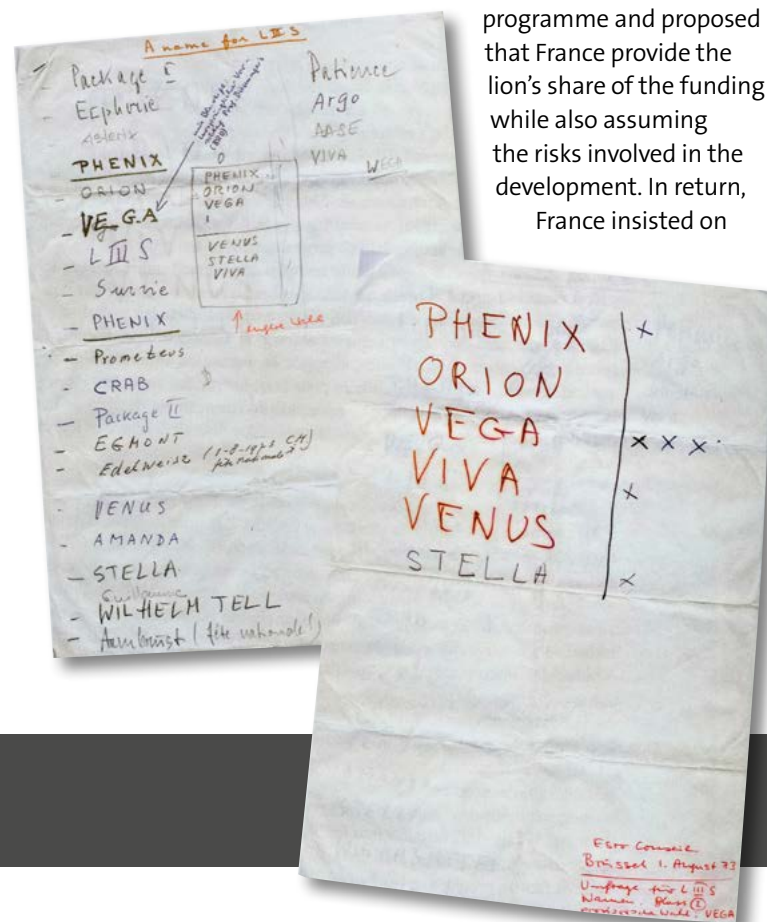 programme and proposed
that France provide the
lion's share of the funding
while also assuming
the risks involved in the
development. In return,
France insisted on
A name for L III S
Package I
Ecphorie
Asterix
PHENIX
ORION
VEGA
L III S
Survie
PHENIX
Prometeus
CRAB
Package II
EGMONT
Edelweiss (1-8-1973 CH)
fête nationale
VENUS
AMANDA
STELLA
Guillaume
WILHELM TELL
Armbrust (fête nationale!)
Patience
Argo
AASE
VIVA
WEGA
PHENIX
ORION
VEGA
VENUS
STELLA
VIVA
PHENIX x
ORION
VEGA x x x
VIVA x
VENUS
STELLA x
Brüssel 1. August 73
Umfrage für L III S
Namen.
provisorische Wahl: VEGA